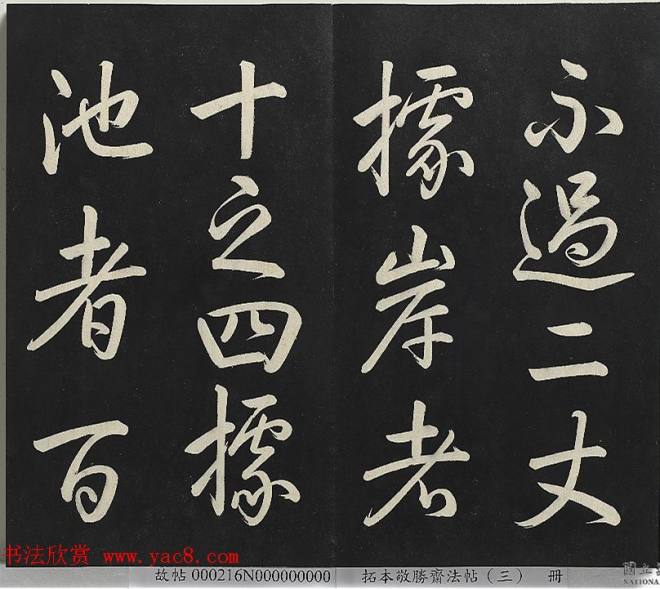 不過二丈
據岸者
十之四據
池者百
书法欣赏 www.yac8.com
故帖 000216N000000000 拓本敬勝齋法帖（三） 册
國立
NATIONAL